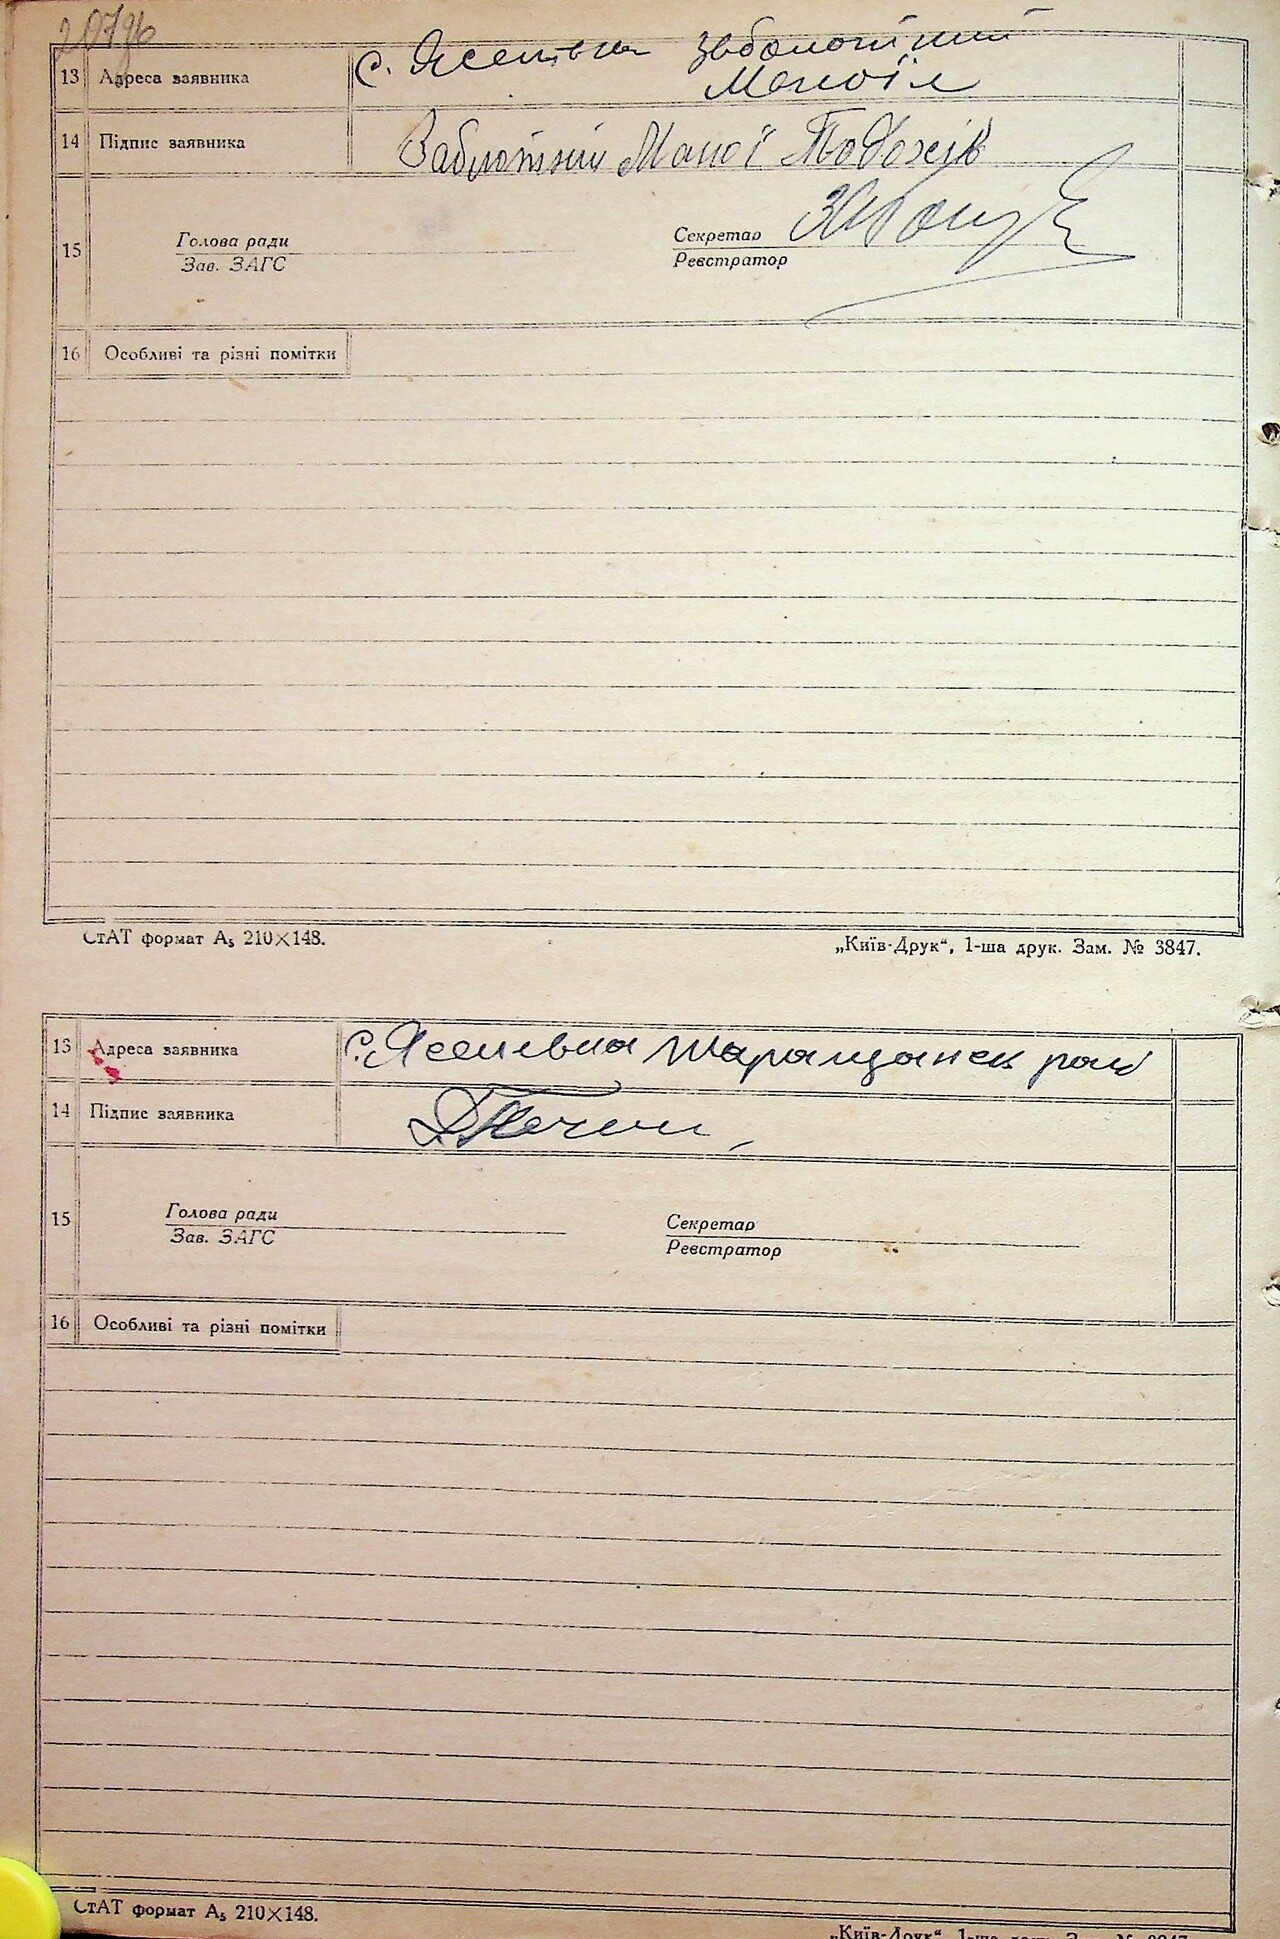 20796
13 Адреса заявника с. Ясенівка Заболотний
Маноїл
14 Підпис заявника Заблотний Маної
15 Голова ради Секретар
Зав. ЗАГС Реєстратор
16 Особливі та різні помітки
СтАТ формат А₅ 210×148. „Київ-Друк“, 1-ша друк. Зам. № 3847.
13 Адреса заявника с. Ясенівка
14 Підпис заявника
15 Голова ради Секретар
Зав. ЗАГС Реєстратор
16 Особливі та різні помітки
СтАТ формат А₅ 210×148.
„Київ-Друк“, 1-ша друк. Зам. № 3847.